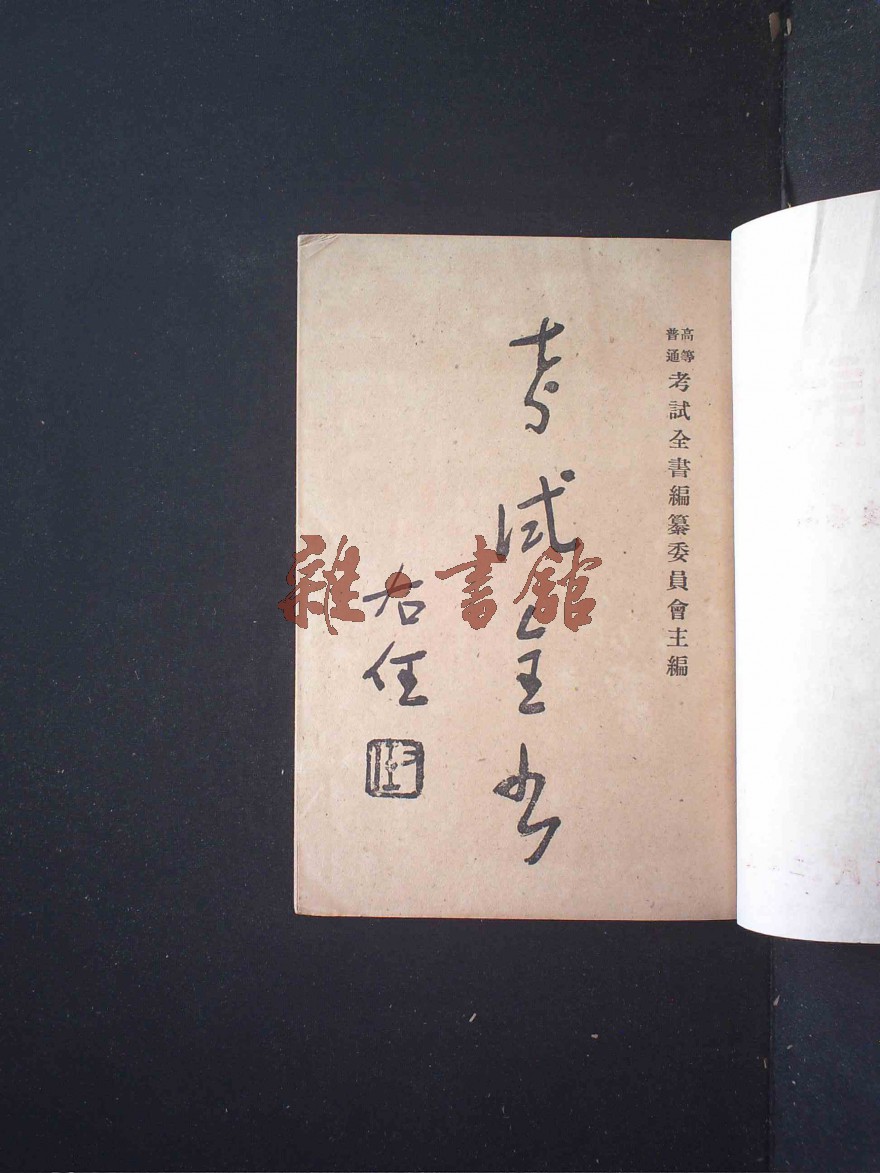 高等
普通
考試全書編纂委員會主編
考試全书
右任
雜·書館